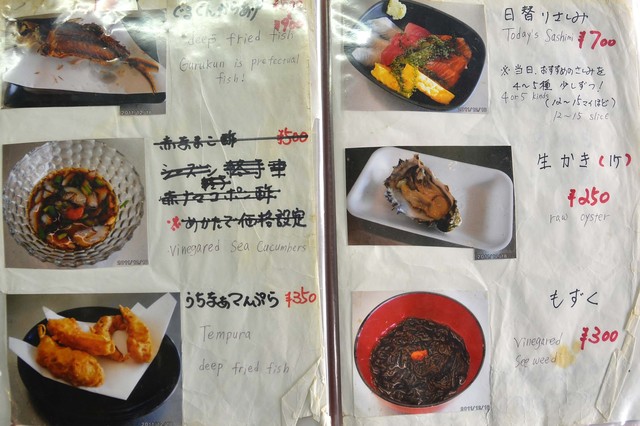 deep fried fish
Gurukun is prefectural
fish!
赤なまこ酢 ¥500
シーズン
赤ナマコポン酢
※めかたで価格設定
Vinegared Sea Cucumbers
うちまぁてんぷら ¥350
Tempura
deep fried fish
日替りさしみ
Today's Sashimi ¥700
※当日、おすすめのさしみを
4～5種 少しずつ!
4 or 5 kinds (12～15マイほど)
12～15 slice
生かき(1ケ)
¥250
raw oyster
もずく
Vinegared ¥300
Sea weed